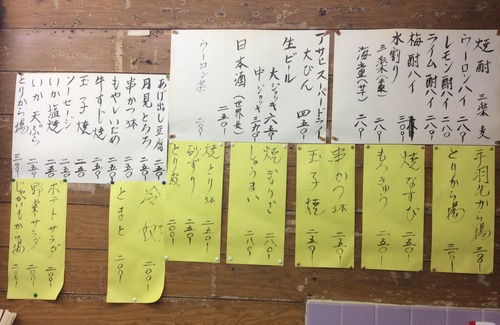 焼酎 三楽 麦
ウーロンハイ 二八〇
レモン酎ハイ 二八〇
ライム酎ハイ 二八〇
梅酎ハイ
水割り
三楽(麦) 二八〇
海童(芋) 三八〇
アサヒスーパードライ
大びん 四五〇
生ビール
大ジョッキ 六八〇
中ジョッキ 三九〇
日本酒(世界長)
二五〇
ウーロン茶 二〇〇
あげ出し豆腐
月見とろろ
串かつ 3本
もやしいため
牛すじ焼
玉子焼
ソーセージ
いか塩焼
いか天ぷら 二五〇
とりから揚 二五〇
手羽先から揚
とりから揚 三〇〇
焼なすび 二五〇
もろきゅう 二五〇
串かつ 3本 二五〇
玉子焼 二五〇
焼ぎょうざ 二五〇
しゅうまい 二八〇
焼とり 3本 二五〇
砂ずり 二五〇
とり皮 二〇〇
冷奴 二〇〇
とまと 二〇〇
ポテトサラダ 二〇〇
野菜サラダ 二五〇
じゃがいもから揚 二五〇